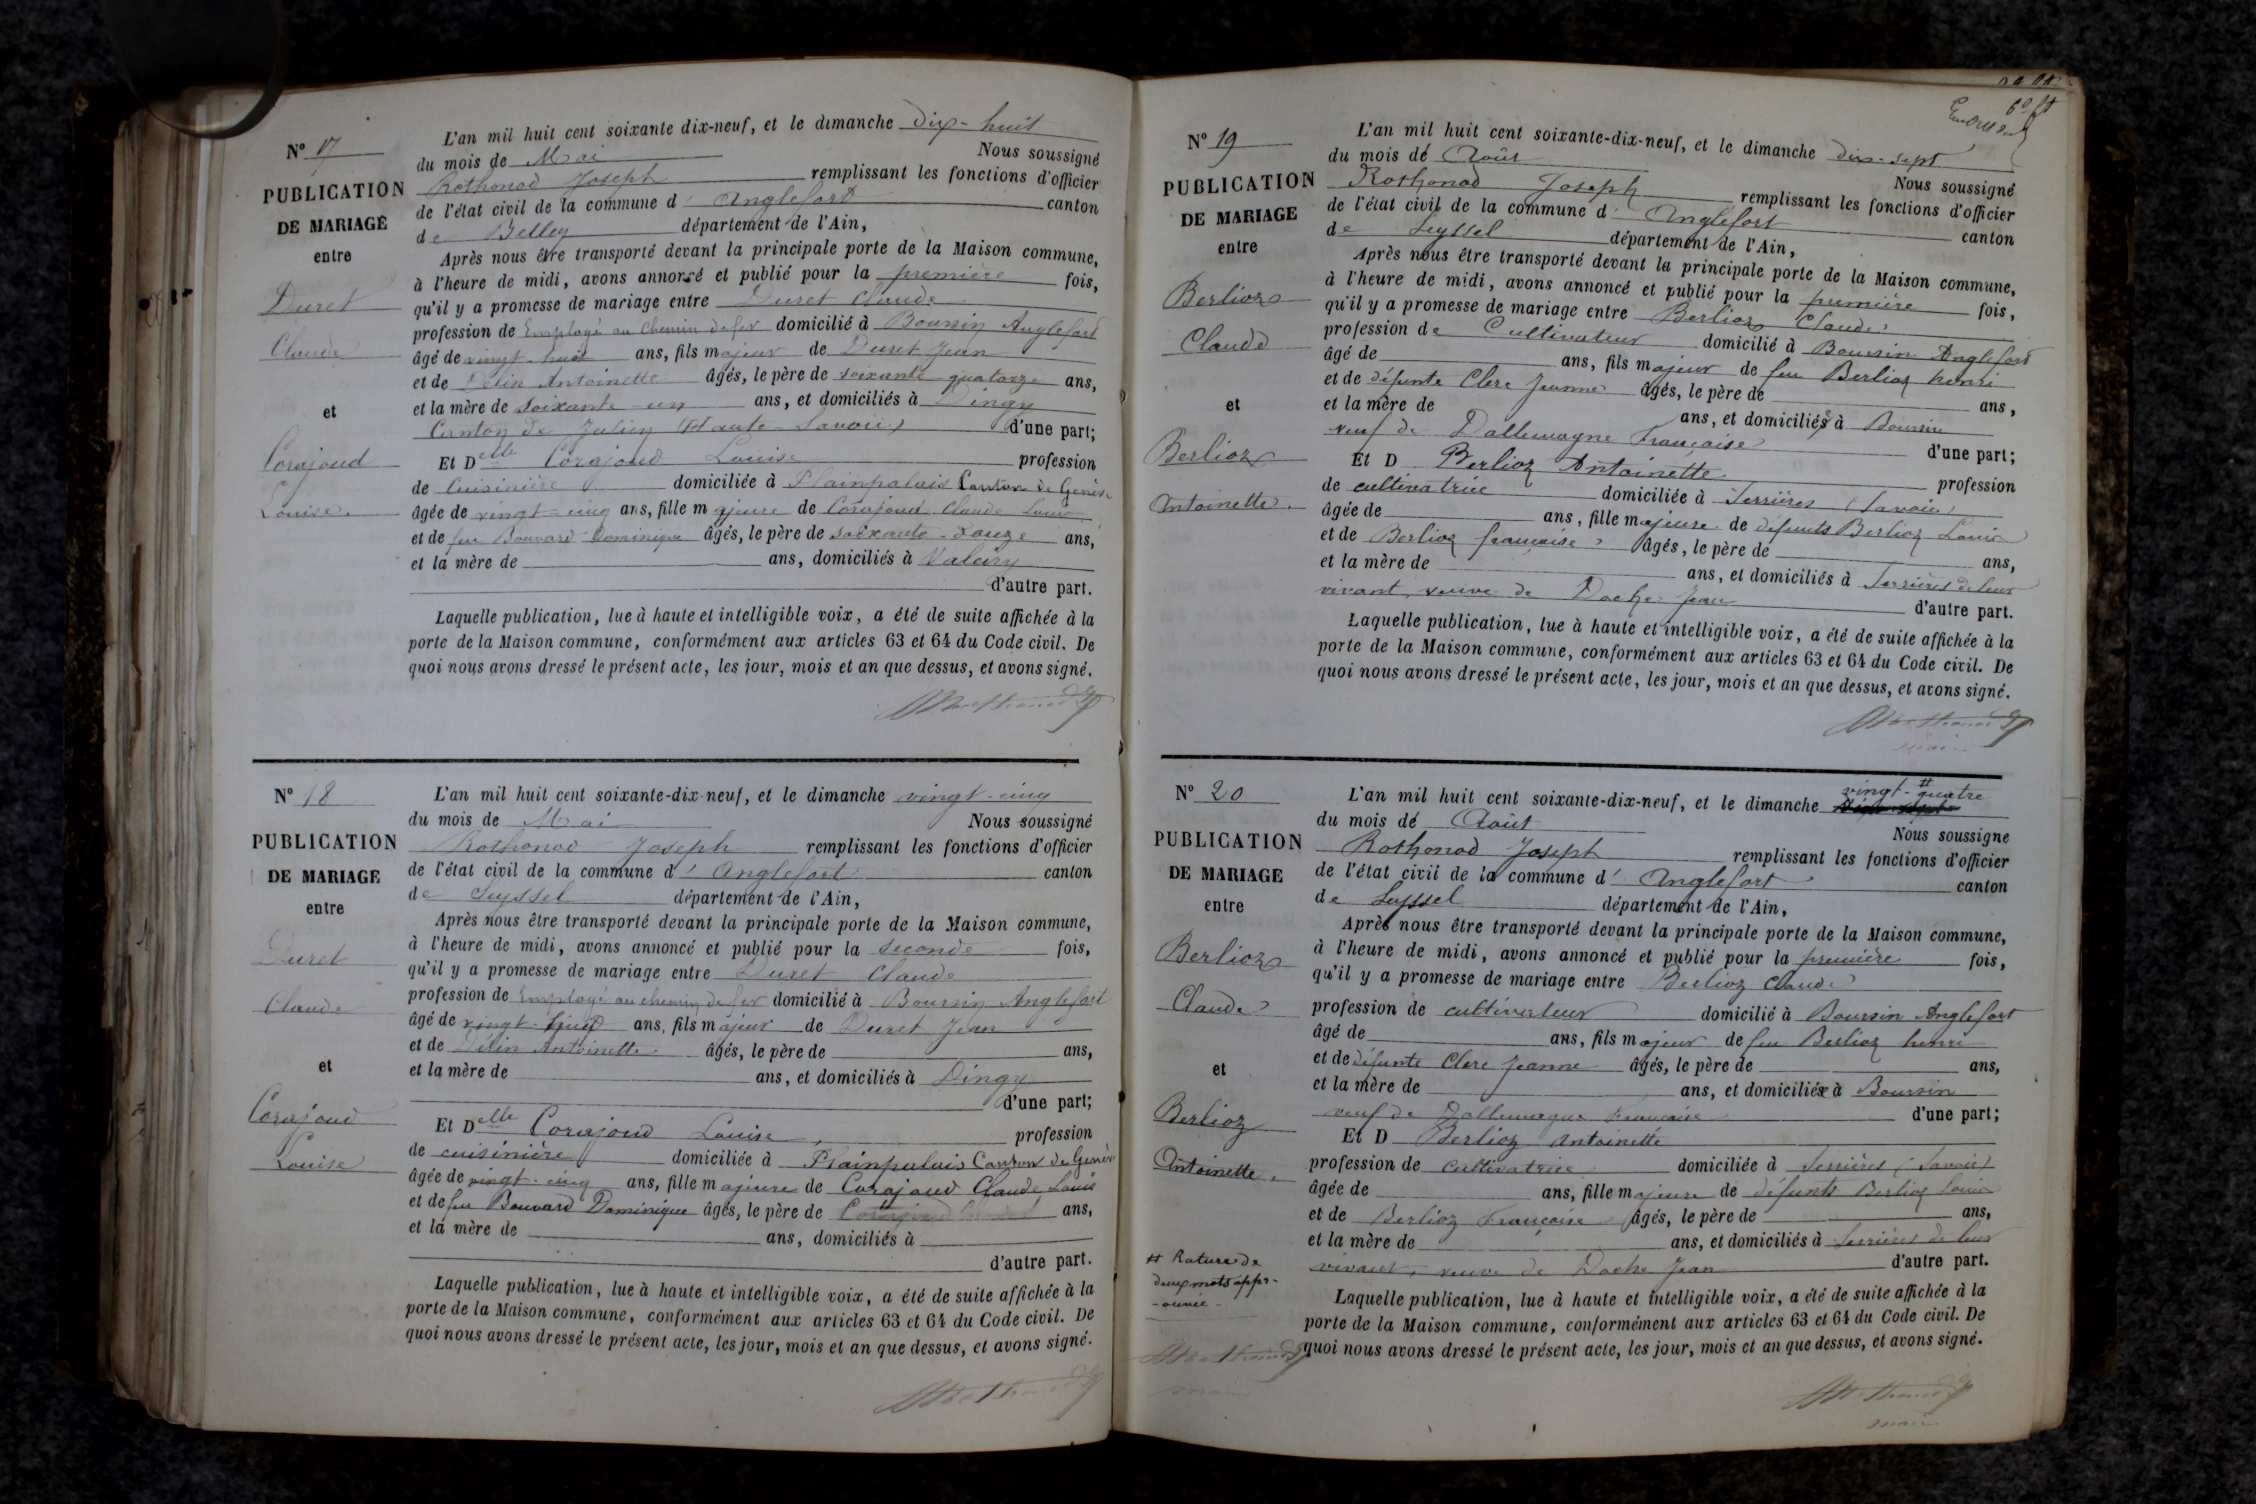 N° 17
PUBLICATION
DE MARIAGE
entre
Duret
Claude
et
Corajoud
Louise.
L'an mil huit cent soixante dix-neuf, et le dimanche dix-huit
du mois de Mai Nous soussigné
Rothonod Joseph remplissant les fonctions d'officier
de l'état civil de la commune d' Anglefort canton
de Belley département de l'Ain,
Après nous être transporté devant la principale porte de la Maison commune,
à l'heure de midi, avons annoncé et publié pour la première fois,
qu'il y a promesse de mariage entre Duret Claude
profession de Employé au chemin de fer domicilié à Boursin Anglefort
âgé de vingt-huit ans, fils majeur de Duret Jean
et de Délin Antoinette âgés, le père de soixante-quatorze ans,
et la mère de soixante-un ans, et domiciliés à Dingy
Canton de Julien (Haute-Savoie) d'une part;
Et Delle Corajoud Louise profession
de Cuisinière domiciliée à Plainpalais Canton de Genève
âgée de vingt-cinq ans, fille majeure de Corajoud Claude Louis
et de feu Bouvard Dominique âgés, le père de soixante-douze ans,
et la mère de ans, domiciliés à Valeiry
d'autre part.
Laquelle publication, lue à haute et intelligible voix, a été de suite affichée à la
porte de la Maison commune, conformément aux articles 63 et 64 du Code civil. De
quoi nous avons dressé le présent acte, les jour, mois et an que dessus, et avons signé.
N° 18
PUBLICATION
DE MARIAGE
entre
Duret
Claude
et
Corajoud
Louise
L'an mil huit cent soixante-dix-neuf, et le dimanche vingt-cinq
du mois de Mai Nous soussigné
Rothonod Joseph remplissant les fonctions d'officier
de l'état civil de la commune d' Anglefort canton
de Seyssel département de l'Ain,
Après nous être transporté devant la principale porte de la Maison commune,
à l'heure de midi, avons annoncé et publié pour la seconde fois,
qu'il y a promesse de mariage entre Duret Claude
profession de Employé au chemin de fer domicilié à Boursin Anglefort
âgé de vingt-huit ans, fils majeur de Duret Jean
et de Délin Antoinette. âgés, le père de ans,
et la mère de ans, et domiciliés à Dingy
d'une part;
Et Delle Corajoud Louise, profession
de cuisinière domiciliée à Plainpalais Canton de Genève
âgée de vingt-cinq ans, fille majeure de Corajoud Claude Louis
et de feu Bouvard Dominique âgés, le père de ans,
et la mère de ans, domiciliés à
d'autre part.
Laquelle publication, lue à haute et intelligible voix, a été de suite affichée à la
porte de la Maison commune, conformément aux articles 63 et 64 du Code civil. De
quoi nous avons dressé le présent acte, les jour, mois et an que dessus, et avons signé.
N° 19
PUBLICATION
DE MARIAGE
entre
Berlioz
Claude
et
Berlioz
Antoinette.
L'an mil huit cent soixante-dix-neuf, et le dimanche dix-sept
du mois de Août Nous soussigné
Rothonod Joseph remplissant les fonctions d'officier
de l'état civil de la commune d' Anglefort canton
de Seyssel département de l'Ain,
Après nous être transporté devant la principale porte de la Maison commune,
à l'heure de midi, avons annoncé et publié pour la première fois,
qu'il y a promesse de mariage entre Berlioz Claude
profession de Cultivateur domicilié à Boursin Anglefort
âgé de ans, fils majeur de feu Berlioz henri
et de défunte Clerc Jeanne âgés, le père de ans,
et la mère de ans, et domiciliés à Boursin
veuf de Dallemagne Française d'une part;
Et D Berlioz Antoinette profession
de cultivatrice domiciliée à Serrières (Savoie)
âgée de ans, fille majeure de défunts Berlioz Louis
et de Berlioz française âgés, le père de ans,
et la mère de ans, et domiciliés à Serrières de leur
vivant, veuve de Doche Jean d'autre part.
Laquelle publication, lue à haute et intelligible voix, a été de suite affichée à la
porte de la Maison commune, conformément aux articles 63 et 64 du Code civil. De
quoi nous avons dressé le présent acte, les jour, mois et an que dessus, et avons signé.
maire
N° 20
PUBLICATION
DE MARIAGE
entre
Berlioz
Claude
et
Berlioz
Antoinette.
# Rature de
deux mots appr-
-ouvée-
maire
L'an mil huit cent soixante-dix-neuf, et le dimanche vingt-quatre #
du mois de Août Nous soussigné
Rothonod Joseph remplissant les fonctions d'officier
de l'état civil de la commune d' Anglefort canton
de Seyssel département de l'Ain,
Après nous être transporté devant la principale porte de la Maison commune,
à l'heure de midi, avons annoncé et publié pour la première fois,
qu'il y a promesse de mariage entre Berlioz Claude
profession de cultivateur domicilié à Boursin Anglefort
âgé de ans, fils majeur de feu Berlioz henri
et de défunte Clerc Jeanne âgés, le père de ans,
et la mère de ans, et domiciliés à Boursin
veuf de Dallemagne Française d'une part;
Et D Berlioz Antoinette
profession de cultivatrice domiciliée à Serrières (Savoie)
âgée de ans, fille majeure de défunts Berlioz Louis
et de Berlioz Française âgés, le père de ans,
et la mère de ans, et domiciliés à Serrières de leur
vivant, veuve de Doche Jean d'autre part.
Laquelle publication, lue à haute et intelligible voix, a été de suite affichée à la
porte de la Maison commune, conformément aux articles 63 et 64 du Code civil. De
quoi nous avons dressé le présent acte, les jour, mois et an que dessus, et avons signé.
maire